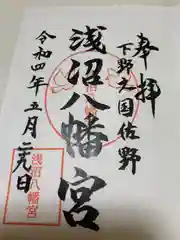 奉拝
下野之国佐野
浅沼八幡宮
令和四年五月二九日
浅沼八幡宮